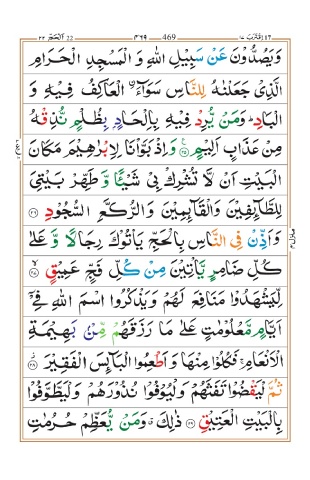 اقترب ١٧ 469 ٤٦٩ الحج 22 ٢٢
وَيَصُدُّوۡنَ عَنۡ سَبِيۡلِ اللّٰهِ وَ الۡمَسۡجِدِ الۡحَـرَامِ
الَّذِىۡ جَعَلۡنٰهُ لِلنَّاسِ سَوَآءَ ۨ الۡعَاكِفُ فِيۡهِ وَ
الۡبَادِ‌ ؕ وَمَنۡ يُّرِدۡ فِيۡهِ بِاِلۡحَـادٍۢ بِظُلۡمٍ نُّذِقۡهُ
مِنۡ عَذَابٍ اَلِيۡمٍ ۟﴿۲۵﴾ وَاِذۡ بَوَّاۡنَا لِاِبۡرٰهِيۡمَ مَكَانَ
الۡبَيۡتِ اَنۡ لَّا تُشۡرِكۡ بِىۡ شَيۡـًٔا وَّ طَهِّرۡ بَيۡتِىَ
لِلطَّآٮِٕفِيۡنَ وَالۡقَآٮِٕمِيۡنَ وَ الرُّكَّعِ السُّجُوۡدِ ﴿۲۶﴾
وَاَذِّنۡ فِى النَّاسِ بِالۡحَجِّ يَاۡتُوۡكَ رِجَالًا وَّ عَلٰى
كُلِّ ضَامِرٍ يَّاۡتِيۡنَ مِنۡ كُلِّ فَجٍّ عَمِيۡقٍ ۙ‏﴿۲۷﴾
لِّيَشۡهَدُوۡا مَنَافِعَ لَهُمۡ وَيَذۡكُرُوا اسۡمَ اللّٰهِ فِىۡۤ
اَ يَّامٍ مَّعۡلُوۡمٰتٍ عَلٰى مَا رَزَقَهُمۡ مِّنۡۢ بَهِيۡمَةِ
الۡاَنۡعَامِ‌‌ۚ فَكُلُوۡا مِنۡهَا وَ اَطۡعِمُوا الۡبَآٮِٕسَ الۡفَقِيۡـرَ ﴿۲۸﴾
ثُمَّ لۡيَـقۡضُوۡا تَفَثَهُمۡ وَلۡيُوۡفُوۡا نُذُوۡرَهُمۡ وَلۡيَطَّوَّفُوۡا
بِالۡبَيۡتِ الۡعَتِيۡقِ‏ ﴿۲۹﴾ ذٰلِكَ وَمَنۡ يُّعَظِّمۡ حُرُمٰتِ